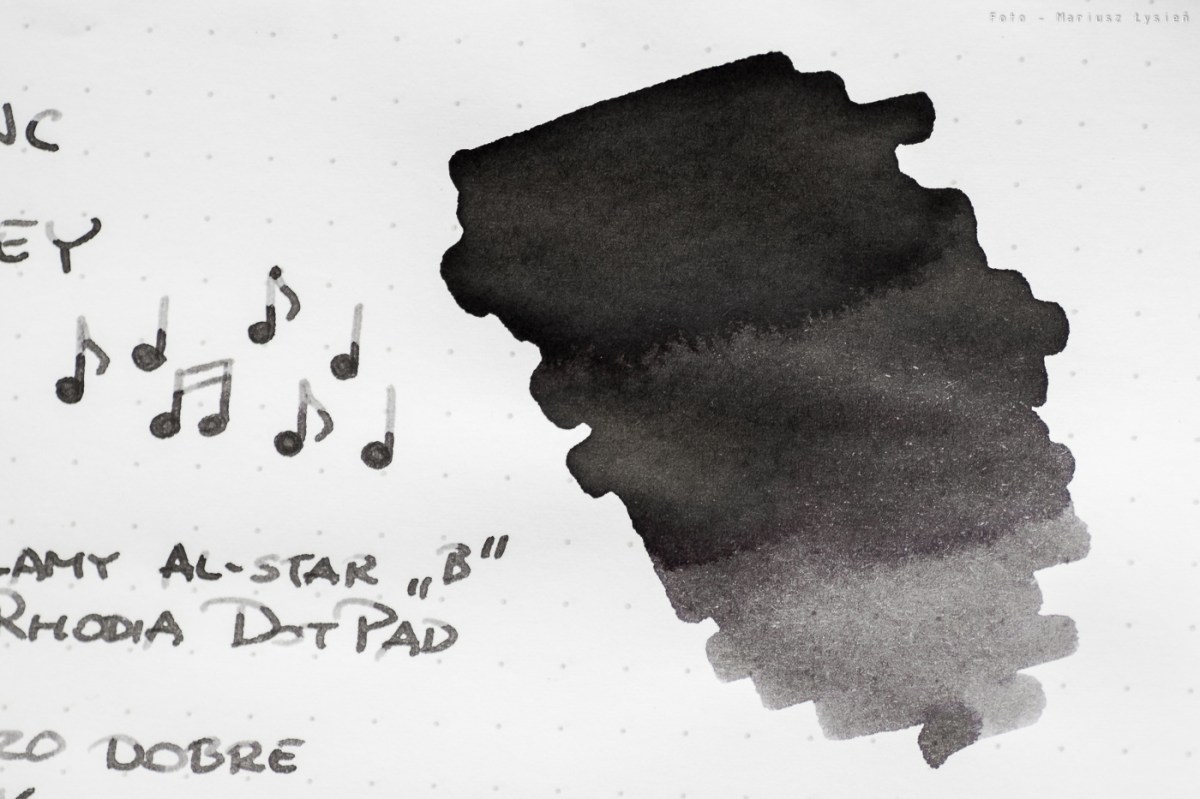 Foto - Mariusz Łysień
NC
EY
LAMY AL-STAR „B"
RHODIA DOT PAD
ZO DOBRE